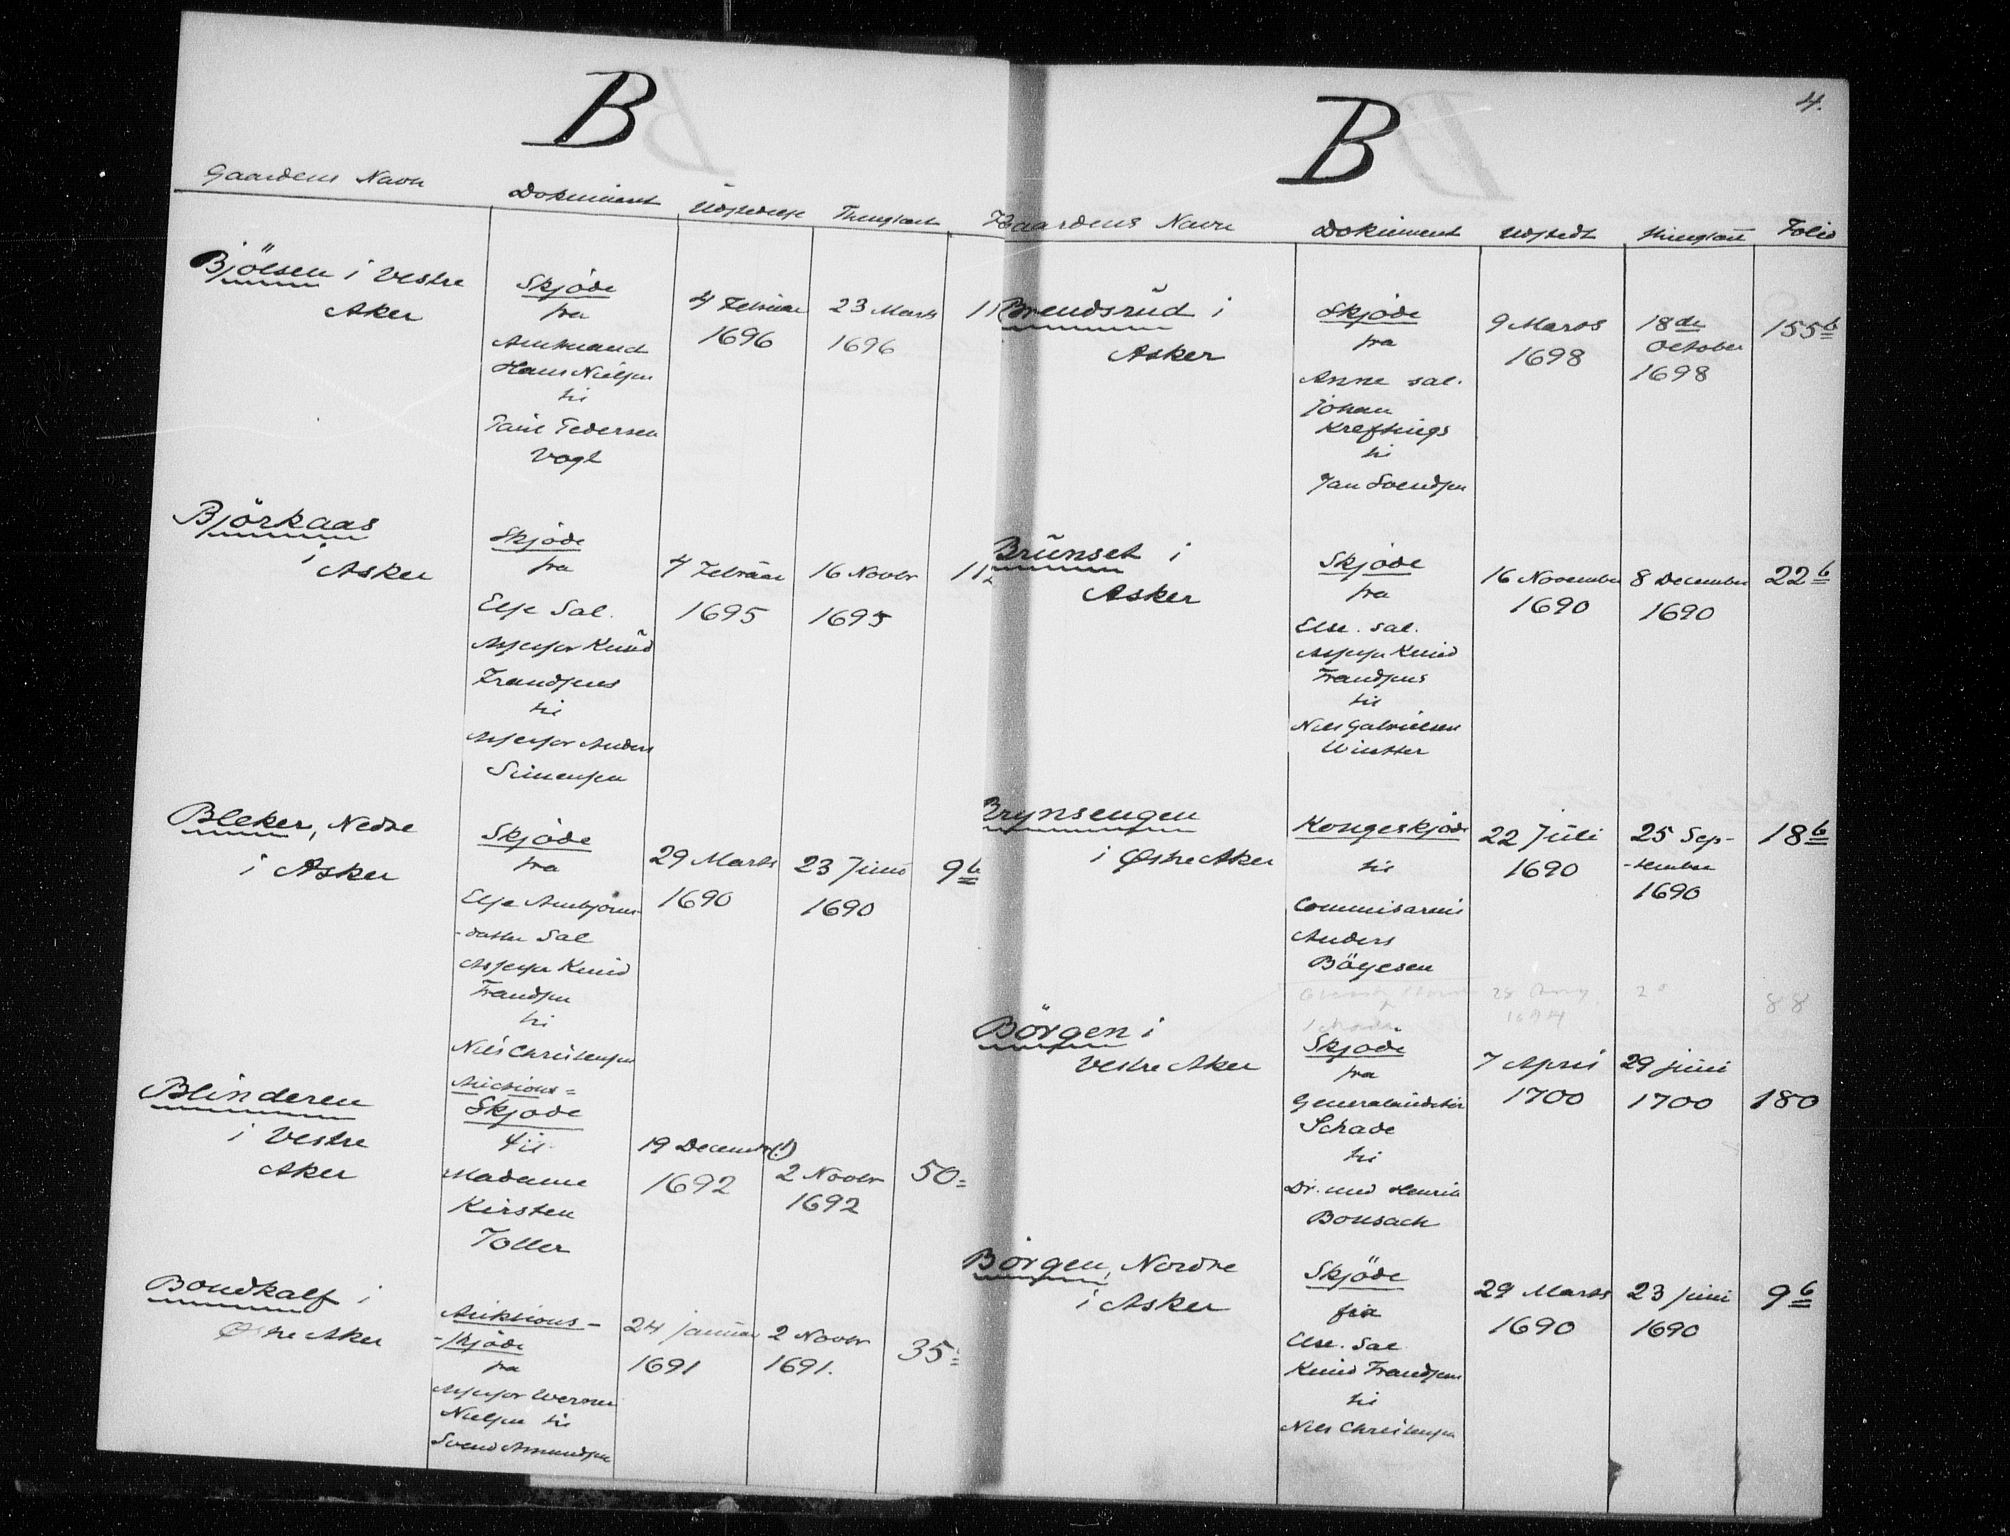 B
Gaardens Navn Dokument Udstedelse Thinglæst
Bjölsen i Vestre
Aker
Skjöde
fra
Amtmand
Hans Nielsen
til
Povl Pedersen
Vogt
4 Februar
1696
23 Marts
1696
Björkaas
i Asker
Skjöde
fra
Else Sal.
Assessor Knŭd
Frandsens
til
Assessor Anders
Simensen
4 Februar
1695
16 Novbr
1695
Bleker, Nedre
i Asker
Skjöde
fra
Else Ambjörns-
-datter Sal
Assessor Knud
Frandsen
til
Niels Christensen
29 Marts
1690
23 Juni
1690
9b
Blinderen
i Vestre
Aker
Auctions=
Skjøde
til
Madame
Kirsten
Toller
19 Decembr (!)
1692
2 Novbr
1692
50=
Bondkalf i
Østre Aker
Auktions-
-skjöde
fra
Assessor Werner
Nielsen til
Svend Amundsen
24 januar
1691
2 Novbr
1691.
35
B
4.
Gaardens Navn Dokument Udstedt Thinglæst Folio
Brendsrŭd i
Asker
Skjøde
fra
Anne sal.
Johan
Kreftings
til
Jan Svendsen
9 Marts
1698
18de
October
1698
155b
Brŭnset i
Asker
Skjøde
fra
Else. sal.
Assessor Knud
Frandsens
til
Niels Gabrielsen
Wintter
16 November
1690
8 December
1690
22b
Brynsengen
i Østre Aker
Kongeskjøde
til
Commisarius
Anders
Böyesen
22 Jŭli
1690
25 Sep-
-tember
1690
18b
88
Börgen i
Vestre Aker
Skjøde
fra
Generalauditør
Schade
til
Dr. med Henrik
Bonsach
7 April
1700
29 juni
1700
180
Börgen, Nordre
i Asker
Skjöde
fra
Else. Sal
Knud Frandsen
til
Niels Christensen
29 Marts
1690
23 juni
1690
9b